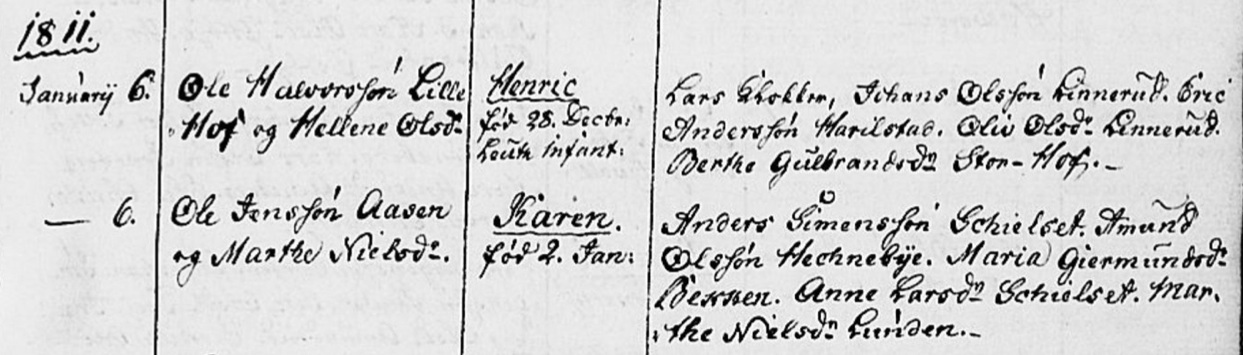 1811.
Januarij 6.
Ole Halvorssøn Lille
Hof og Hellene Olsdr
Henric
fød 28. Decbr:
Lars Klokker, Johans Olssøn Linnerud. Eric
Anderssøn Harilstad. Oliv Olsdr Linnerud.
Berthe Gulbrandsdr Stor-Hof.-
— 6.
Ole Jenssøn Aasen
og Marthe Nielsdr.
Karen.
fød 2. Jan:
Anders Simenssøn Schielset. Amund
Olssøn Hechnebye. Maria Giermundsdr
Anne Larsdr Schielset. Mar-
the Nielsdr Lunden.-